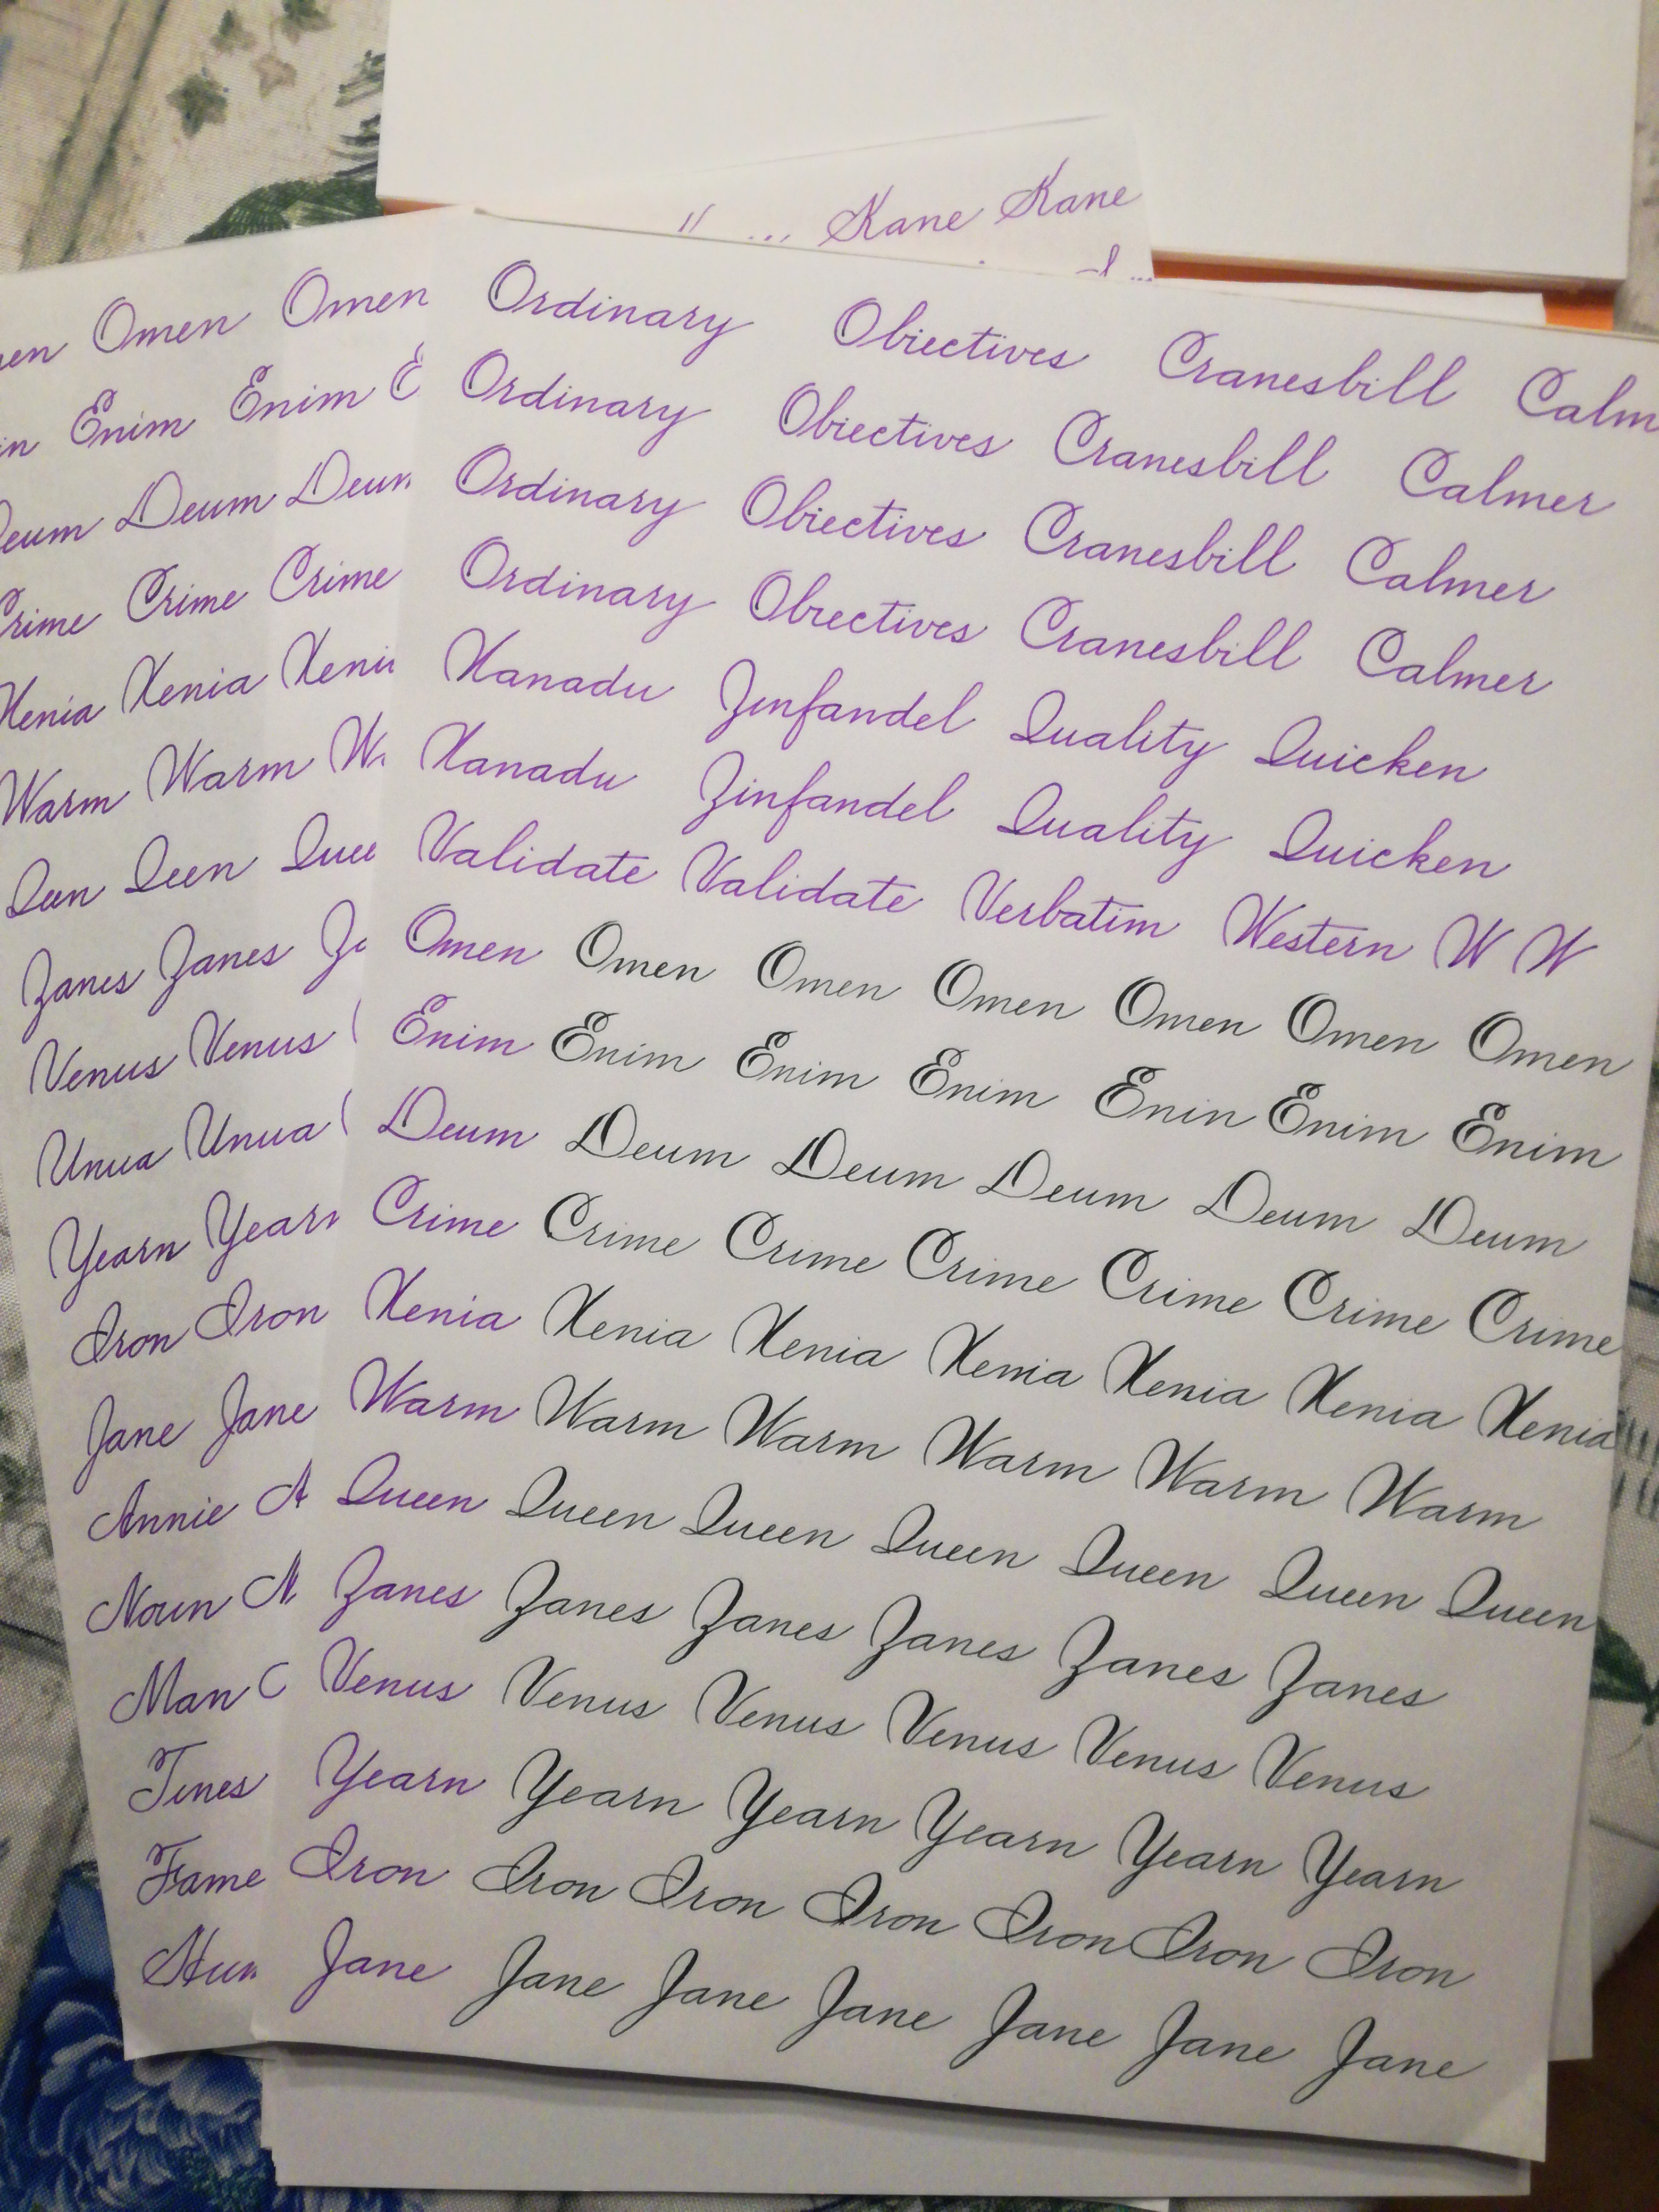 Kane Kane
Ordinary Obiectives Cranesbill Calm
Ordinary Obiectives Cranesbill Calmer
Ordinary Obiectives Cranesbill Calmer
Ordinary Obiectives Cranesbill Calmer
Xanadu Zinfandel Quality Quicken
Xanadu Zinfandel Quality Quicken
Validate Validate Verbatim Western W W
Omen Omen Omen Omen Omen Omen Omen
Enim Enim Enim Enim Enin Enim Enim
Deum Deum Deum Deum Deum Deum
Crime Crime Crime Crime Crime Crime Crime
Xenia Xenia Xenia Xenia Xenia Xenia Xenia
Warm Warm Warm Warm Warm Warm
Queen Queen Queen Queen Queen Queen Queen
Zanes Zanes Zanes Zanes Zanes Zanes
Venus Venus Venus Venus Venus Venus
Yearn Yearn Yearn Yearn Yearn Yearn
Iron Iron Iron Iron Iron Iron Iron
Jane Jane Jane Jane Jane Jane Jane
Omen Omen
Enim Enim E
Deum Deum Deum
Crime Crime Crime
Xenia Xenia Xeni
Warm Warm Wa
Queen Quee
Zanes Zanes Za
Venus Venus
Unua Unua
Yearn Yearn
Iron Iron
Jane Jane
Annie A
Noun N
Man
Tines
Fame
Hun